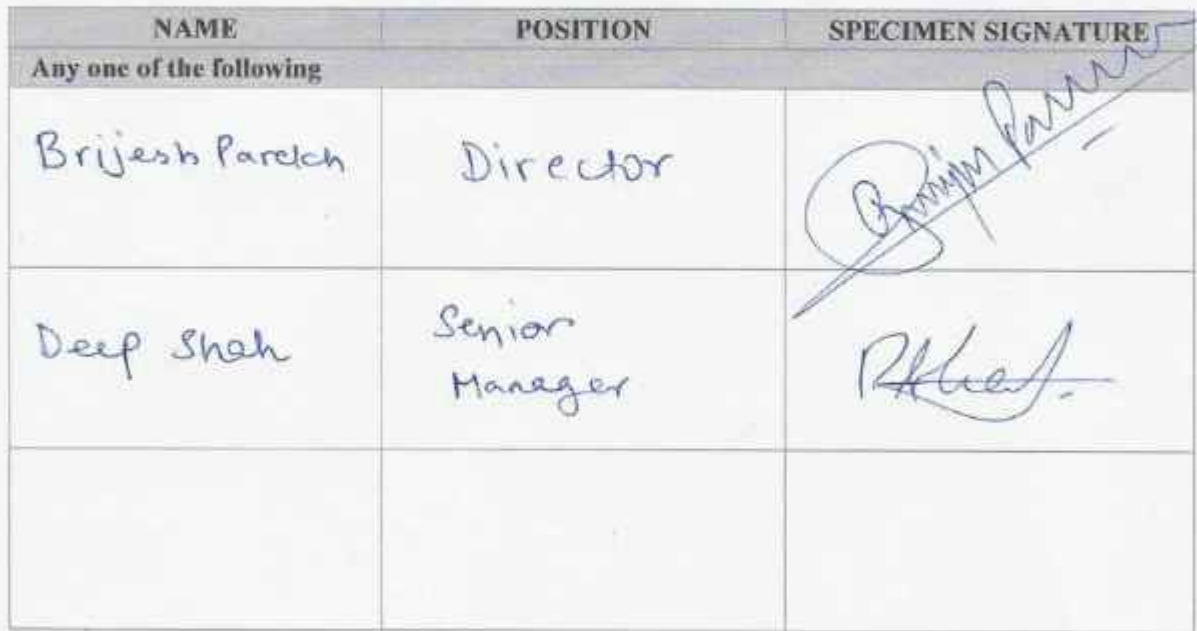 NAME POSITION SPECIMEN SIGNATURE
Any one of the following
Brijesh Parekh Director
Deep Shah Senior
Manager